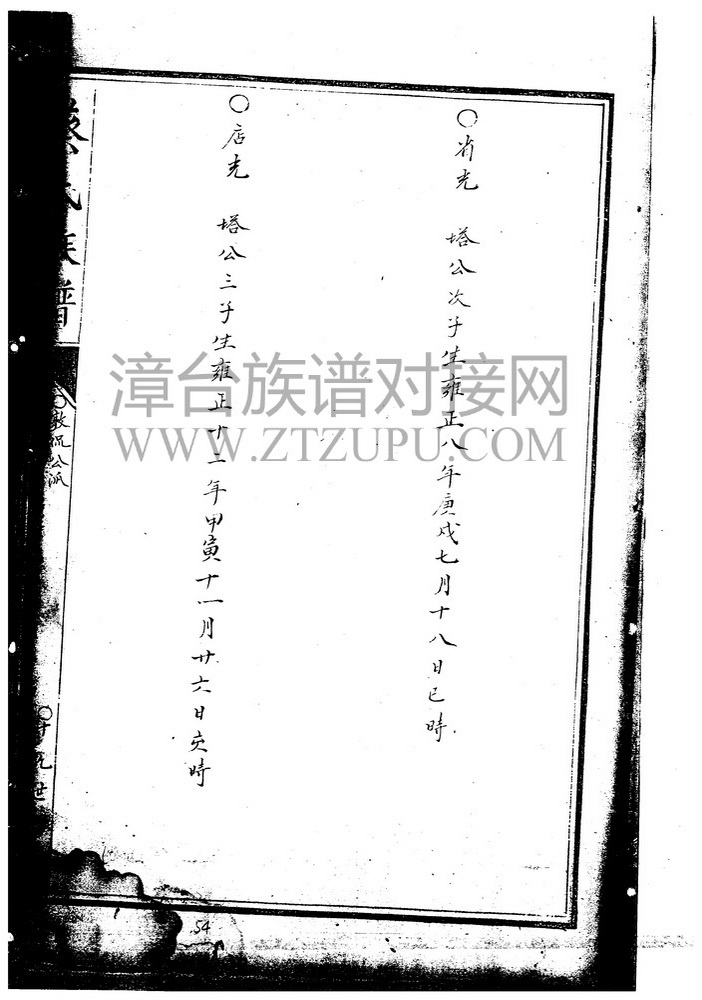 ○省光 塔公次子生雍正八年庚戌七月十八日巳時
○店光 塔公三子生雍正十二年甲寅十一月廿六日亥時
蔡氏族譜
○敦侃公派
○廿九世
漳台族谱对接网
WWW.ZTZUPU.COM
54